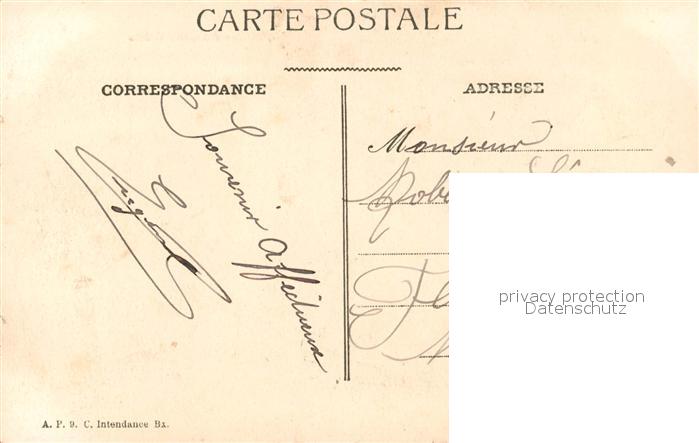 CARTE POSTALE
CORRESPONDANCE
Souvenir affectueux
ADRESSE
Monsieur
privacy protection
Datenschutz
A. P. 9. C. Intendance Bx.